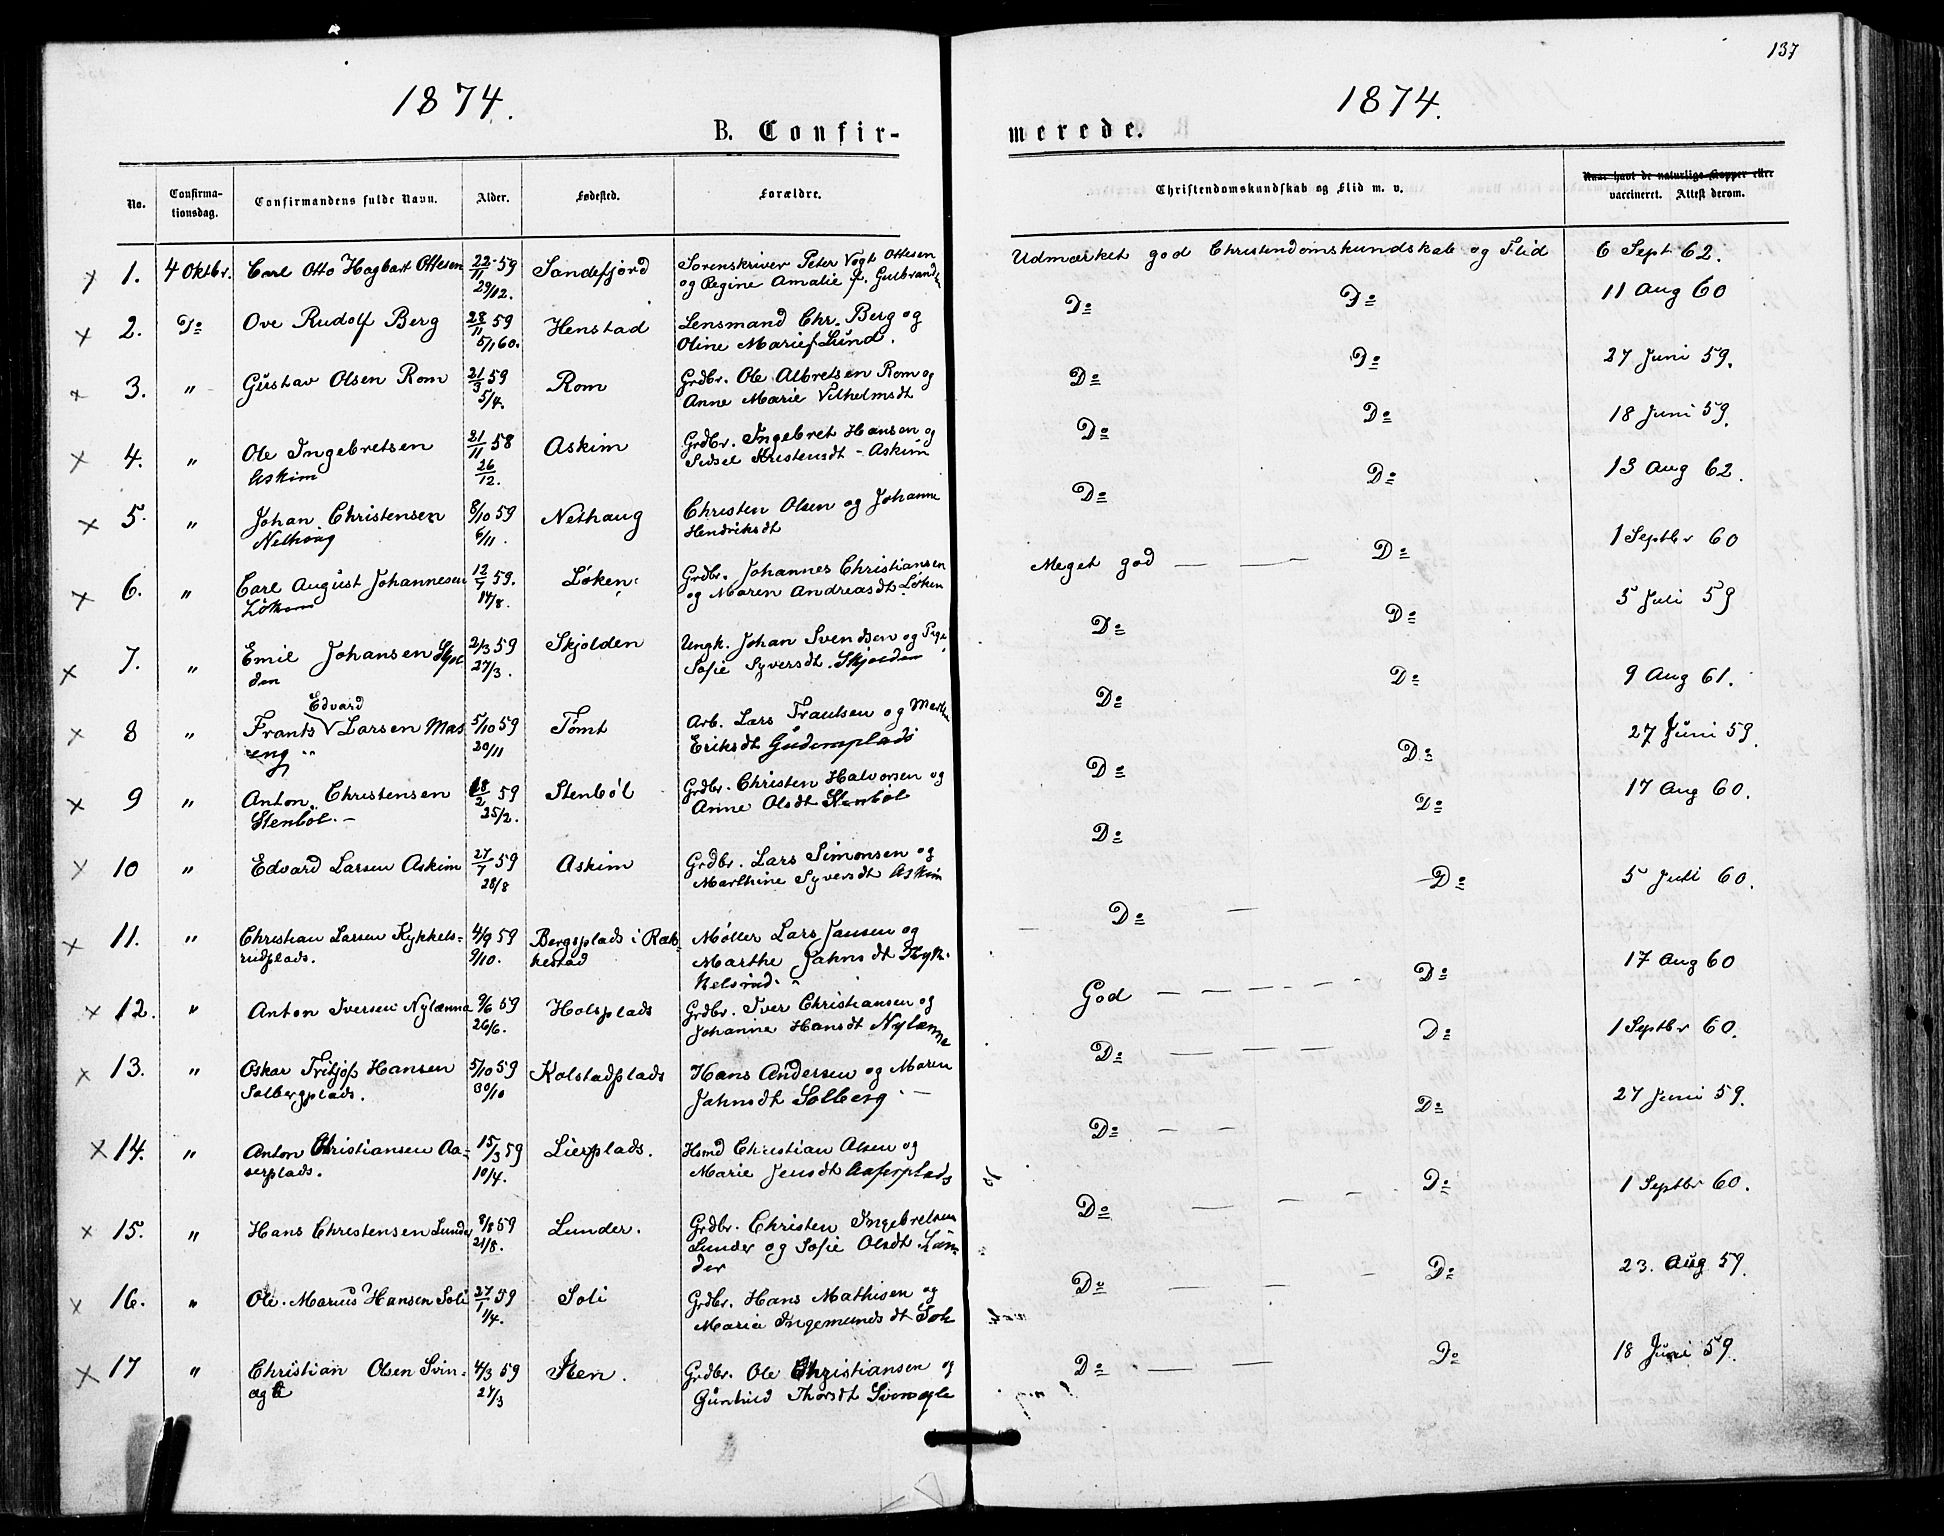 137
1874.
1874.
B. Confir-
merede.
No.
Confirma-
tionsdag.
Confirmandens fulde Navn.
Alder.
Fødested.
Forældre.
Christendomskundskab og Flid m. v.
Naar havt de naturlige Kopper eller
vaccineret. Attest derom.
1. 4 Oktbr. Carl Otto Hagbart Ottesen 22/11 59 Sandefjord Sorenskriver Peter Vogt Ottesen
29/12. og Regine Amalie f. Gulbrands
Udmærket god Christendomskundskab og Flid 6 Sept 62.
2. Do Ove Rudolf Berg 28/11 59 Henstad Lensmand Chr. Berg og
5/1 60. Oline Marie f Lund.
Do Do 11 Aug 60
3. " Gustav Olsen Rom 21/3 59 Rom Grdbr. Ole Albretsen Rom og
5/4. Anne Marie Vilhelmsdt
Do Do 27 Juni 59.
4. " Ole Ingebretsen 21/11 58 Askim Grdbr. Ingebret Hansen og
Askim 26/12. Sidsel Kristensdt - Askim
Do Do 18 Juni 59.
5. " Johan Christensen 8/10 59 Nethaug Christen Olsen og Johanne
Nethoug 6/11. Hendriksdt
Do Do 13 Aug 62.
6. " Carl August Johannesen 12/7 59. Løken Grdbr. Johannes Christiansen
Løken 14/8. og Maren Andreasdt Løken
Meget god — — — Do 1 Septbr 60
7. " Emil Johansen Skjol 2/3 59 Skjolden Ungk. Johan Svendsen og Pige
den 27/3. Sofie Syversdt. Skjolden
Do Do 5 Juli 59
Edvard
8 " Frants V Larsen Mas 5/10 59 Tomt Arb. Lars Frantsen og Marthe
eng " 20/11 Eriksdt Gudemplads
Do Do 9 Aug 61.
9 " Anton Christensen 18/2 59 Stenbøl Grdbr. Christen Halvorsen og
Stenbøl. - 25/2. Anne Olsdt Stenbøl
Do Do 27 Juni 59.
10 " Edvard Larsen Askim 27/7 59 Askim Grdbr. Lars Simonsen og
28/8 Marthine Syversdt Askim
Do Do 17 Aug 60.
11. " Christian Larsen Kykkels- 4/9 59 Bergsplads i Rak- Møller Lars Jansen og
rudplads. 9/10. kestad Marthe Jahnsdt Kyk-
kelsrud.
Do — Do 5 Juli 60.
12. " Anton Iversen Nylænna 9/6 59 Holsplads Grdbr. Iver Christiansen og
26/6. Johanne Hansdt Nylænne
God — — — — Do 17 Aug 60
13. " Oskar Fritjof Hansen 5/10 59 Kolstadplads Hans Andersen og Maren
Solbergplads. 30/10 Jahnsdt Solberg. —
Do — — — Do 1 Septbr 60.
14. " Anton Christiansen Aa- 15/3 59 Lierplads. Hsmd Christian Olsen og
serplads. 10/4. Marie Jensdt Aaserplads
Do — — Do 27 Juni 59.
15. " Hans Christensen Lunder 8/8 59 Lunder. Grdbr. Christen Ingebretsen
21/8. Lunder og Sofie Olsdt Lun-
der
Do — — — Do 1 Septbr 60.
16. " Ole Marius Hansen Soli 27/1 59 Soli Grdbr. Hans Mathisen og
1/4. Maria Ingemundsdt Soli
Do — — Do 23. Aug 59.
17 " Christian Olsen Svin- 4/3 59 Sten. Grdbr. Ole Christiansen og
agle 27/3 Gunhild Thorsdt Svenagle
Do — — Do 18 Juni 59.